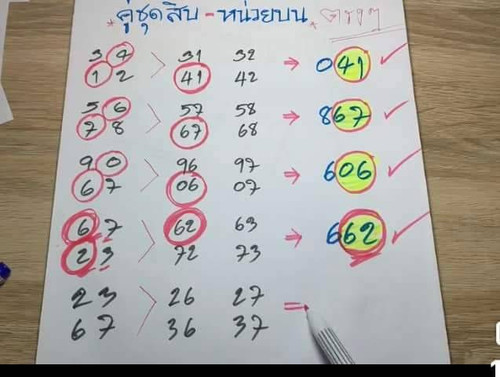 * คู่ชุดสิบ - หน่วยบน * ตรงๆ
3 4 31 32
1 2 > 41 42 ⇒ 041
5 6 57 58
7 8 > 67 68 ⇒ 867
9 0 96 97
6 7 > 06 07 ⇒ 606
6 7 62 63
2 3 > 72 73 ⇒ 662
2 3 > 26 27 =
6 7 36 37